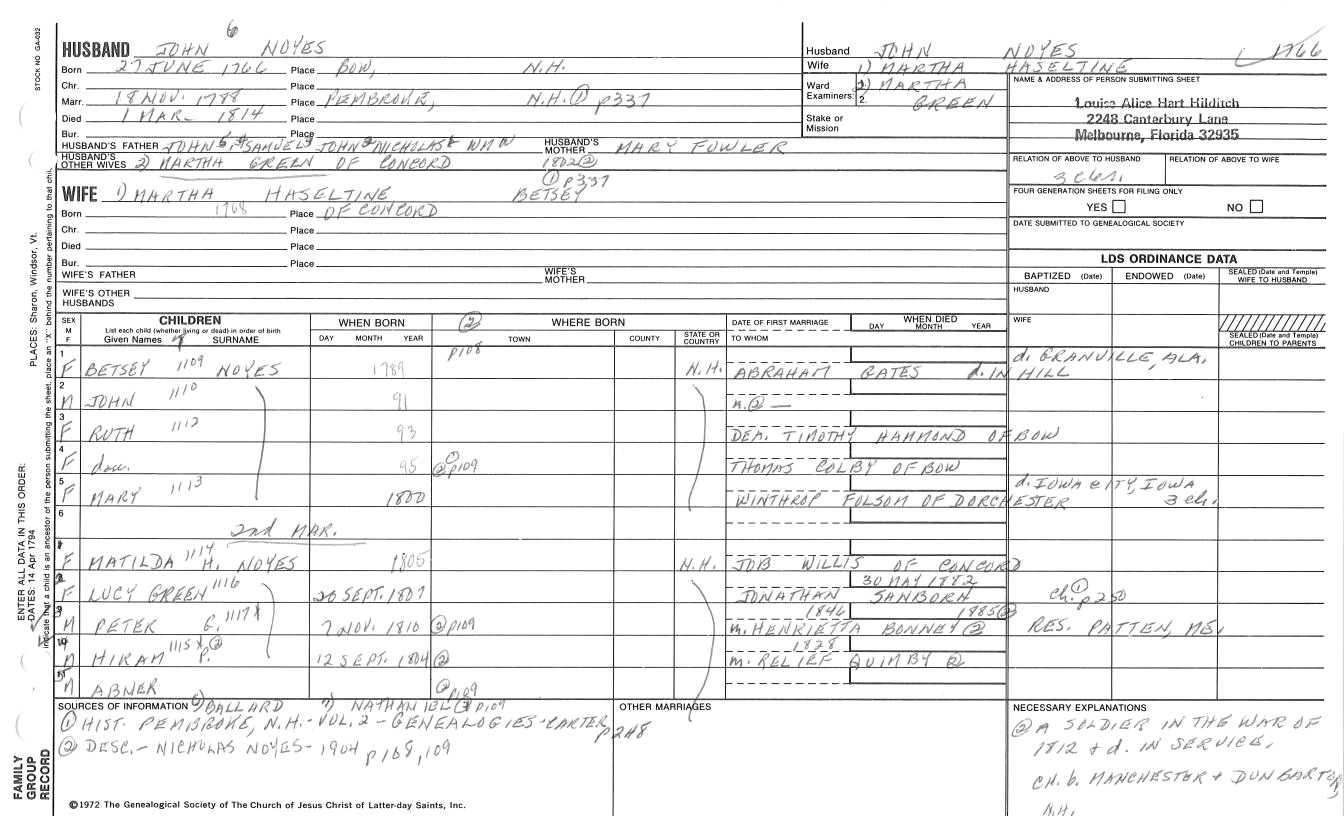 STOCK NO GA-032
PLACES: Sharon, Windsor, Vt.
ENTER ALL DATA IN THIS ORDER:
DATES: 14 Apr 1794
indicate that a child is an ancestor of the person submitting the sheet, place an "X" behind the number pertaining to that child.
FAMILY GROUP RECORD
6
HUSBAND JOHN NOYES
Born 27 JUNE 1766 Place BOW, N.H.
Chr. Place
Marr. 18 NOV. 1788 Place PEMBROKE, N.H. ① p337
Died 1 MAR 1814 Place
Bur. Place
HUSBAND'S FATHER JOHN 5, 4 SAMUEL 3 JOHN 2 NICHOLAS WM HUSBAND'S MOTHER MARY FOWLER
HUSBAND'S OTHER WIVES 2) MARTHA GREEN OF CONCORD 1802 ②
① p337
WIFE 1) MARTHA HASELTINE BETSEY
Born 1768 Place OF CONCORD
Chr. Place
Died Place
Bur. Place
WIFE'S FATHER WIFE'S MOTHER
WIFE'S OTHER HUSBANDS
Husband JOHN NOYES 1766
Wife 1) MARTHA HASELTINE
Ward 2) MARTHA GREEN
Examiners: 1. 2.
Stake or Mission
NAME & ADDRESS OF PERSON SUBMITTING SHEET
Louise Alice Hart Hilditch
2248 Canterbury Lane
Melbourne, Florida 32935
RELATION OF ABOVE TO HUSBAND RELATION OF ABOVE TO WIFE
FOUR GENERATION SHEETS FOR FILING ONLY
YES NO
DATE SUBMITTED TO GENEALOGICAL SOCIETY
LDS ORDINANCE DATA
BAPTIZED (Date) ENDOWED (Date) SEALED (Date and Temple) WIFE TO HUSBAND
HUSBAND
WIFE
SEALED (Date and Temple) CHILDREN TO PARENTS
SEX M F CHILDREN List each child (whether living or dead) in order of birth Given Names SURNAME
WHEN BORN DAY MONTH YEAR
② WHERE BORN TOWN COUNTY STATE OR COUNTRY
DATE OF FIRST MARRIAGE TO WHOM
WHEN DIED DAY MONTH YEAR
p108
1 F BETSEY 1109 NOYES 1789 N.H. ABRAHAM GATES d. IN HILL d. GRANVILLE, ALA.
2 M JOHN 1110 91 m. ② —
3 F RUTH 1112 93 DEA. TIMOTHY HAMMOND OF BOW
4 F dau. 95 ① ② p109 THOMAS COLBY OF BOW
5 F MARY 1113 1800 WINTHROP FOLSOM OF DORCHESTER d. IOWA CITY, IOWA 3 ch.
6 2nd MAR.
F MATILDA 1114 H. NOYES 1805 N.H. JOB WILLIS OF CONCORD
F LUCY GREEN 1116 20 SEPT. 1807 JONATHAN SANBORN 30 MAY 1882 ch. ① p250
M PETER G. 1117 X 7 NOV. 1810 ② p109 1846 m. HENRIETTA BONNEY ② 1885 ② RES. PATTEN, ME.
M HIRAM 1115 X ② P. 12 SEPT. 1804 ② 1828 m. RELIEF QUIMBY ②
M ABNER ② p109
SOURCES OF INFORMATION 6) BALLARD 7) NATHANIEL ② p109
① HIST. PEMBROKE, N.H. - VOL. 2 - GENEALOGIES - CARTER p248
② DESC. - NICHOLAS NOYES - 1904 p108, 109
OTHER MARRIAGES
NECESSARY EXPLANATIONS
② A SOLDIER IN THE WAR OF
1812 & d. IN SERVICE.
CH. b. MANCHESTER & DUNBARTON,
N.H.
©1972 The Genealogical Society of The Church of Jesus Christ of Latter-day Saints, Inc.